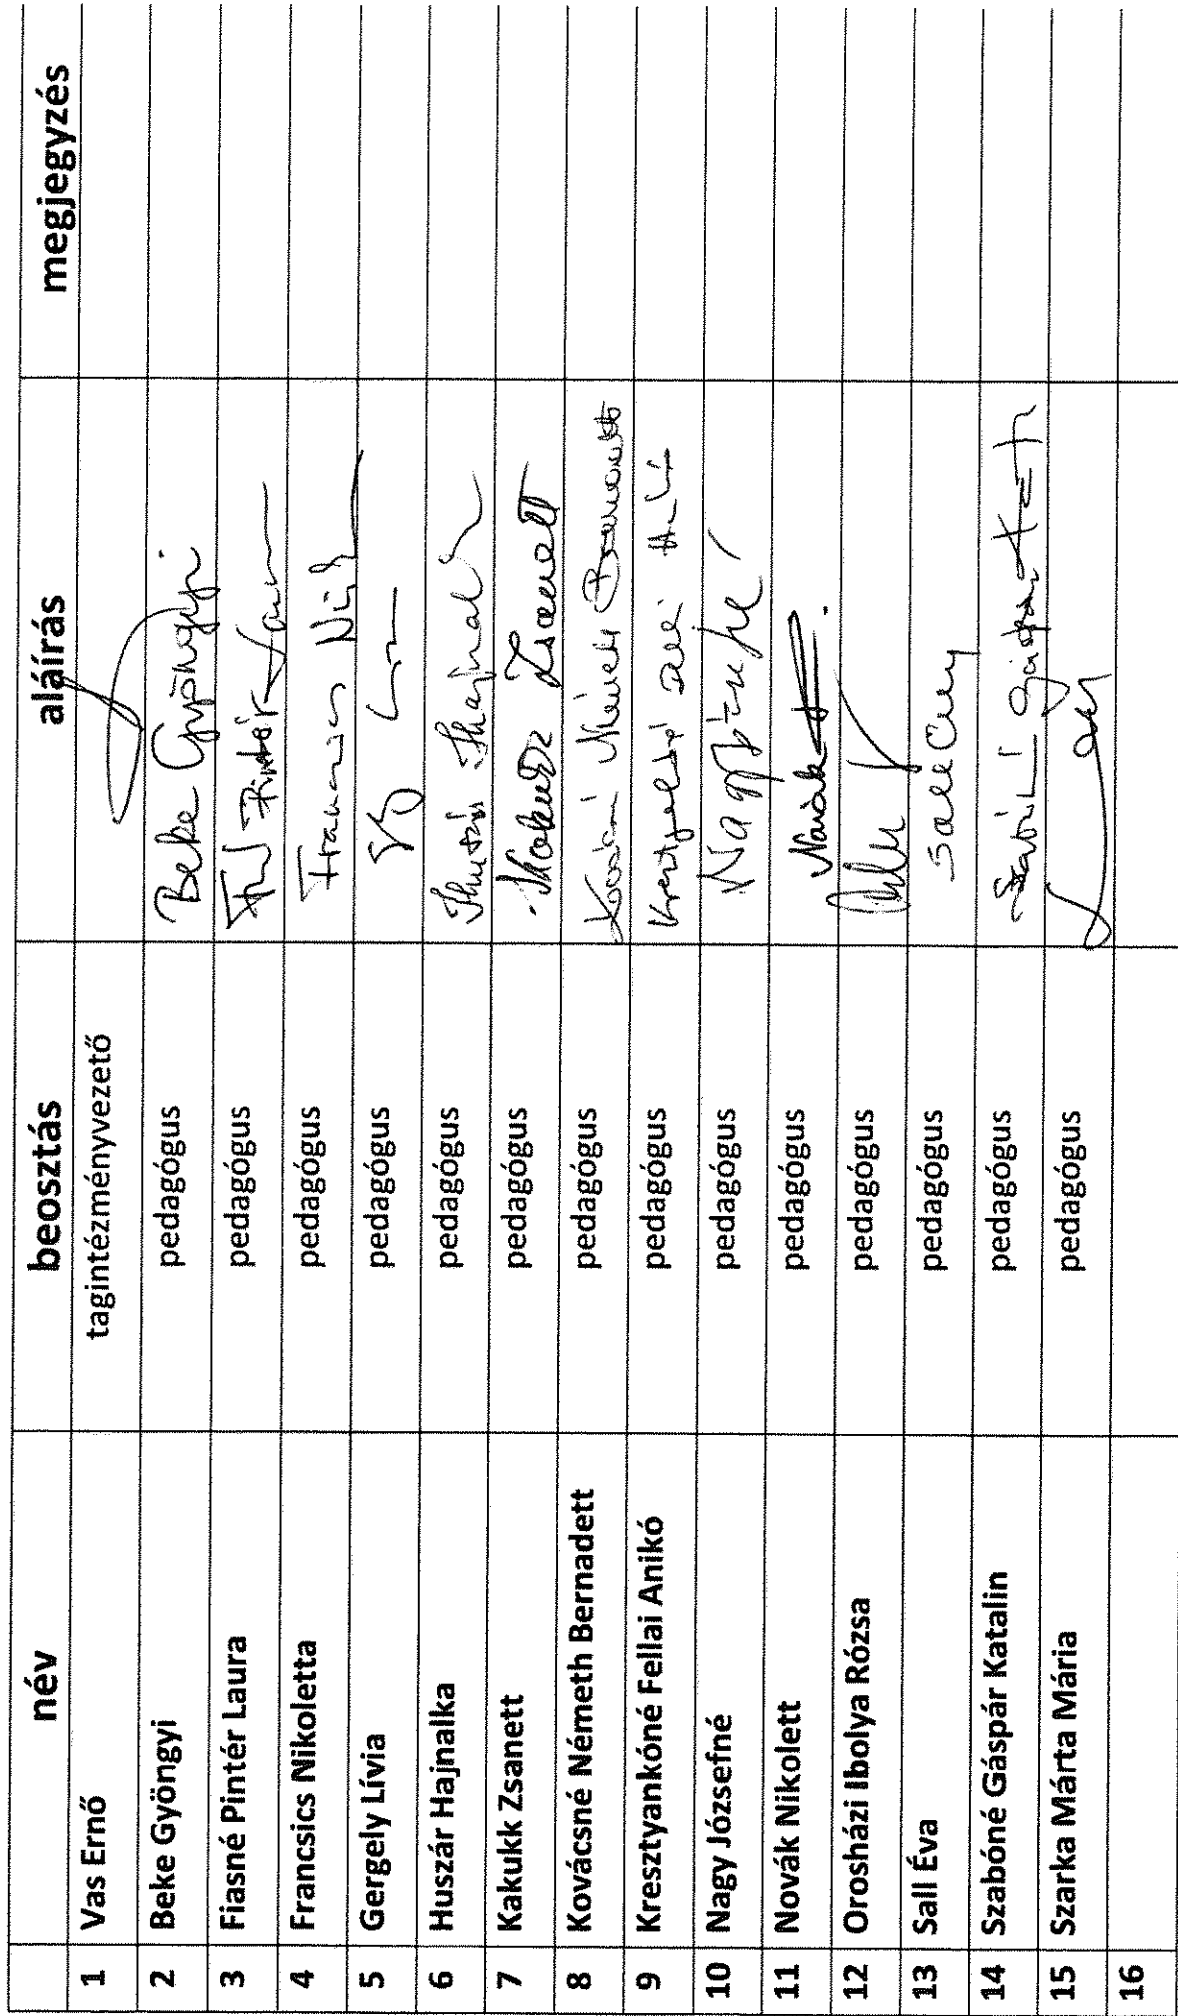 név beosztás aláírás megjegyzés
1 Vas Ernő tagintézményvezető
2 Beke Gyöngyi pedagógus Beke Gyöngyi
3 Fiasné Pintér Laura pedagógus Pintér Laura
4 Francsics Nikoletta pedagógus
5 Gergely Lívia pedagógus
6 Huszár Hajnalka pedagógus Huszár Hajnalka
7 Kakukk Zsanett pedagógus Kakukk Zsanett
8 Kovácsné Németh Bernadett pedagógus Németh Bernadett
9 Kresztyankóné Fellai Anikó pedagógus
10 Nagy Józsefné pedagógus Nagy Józsefné
11 Novák Nikolett pedagógus Novák
12 Orosházi Ibolya Rózsa pedagógus
13 Sall Éva pedagógus Sall Éva
14 Szabóné Gáspár Katalin pedagógus Szabóné Gáspár
15 Szarka Márta Mária pedagógus
16